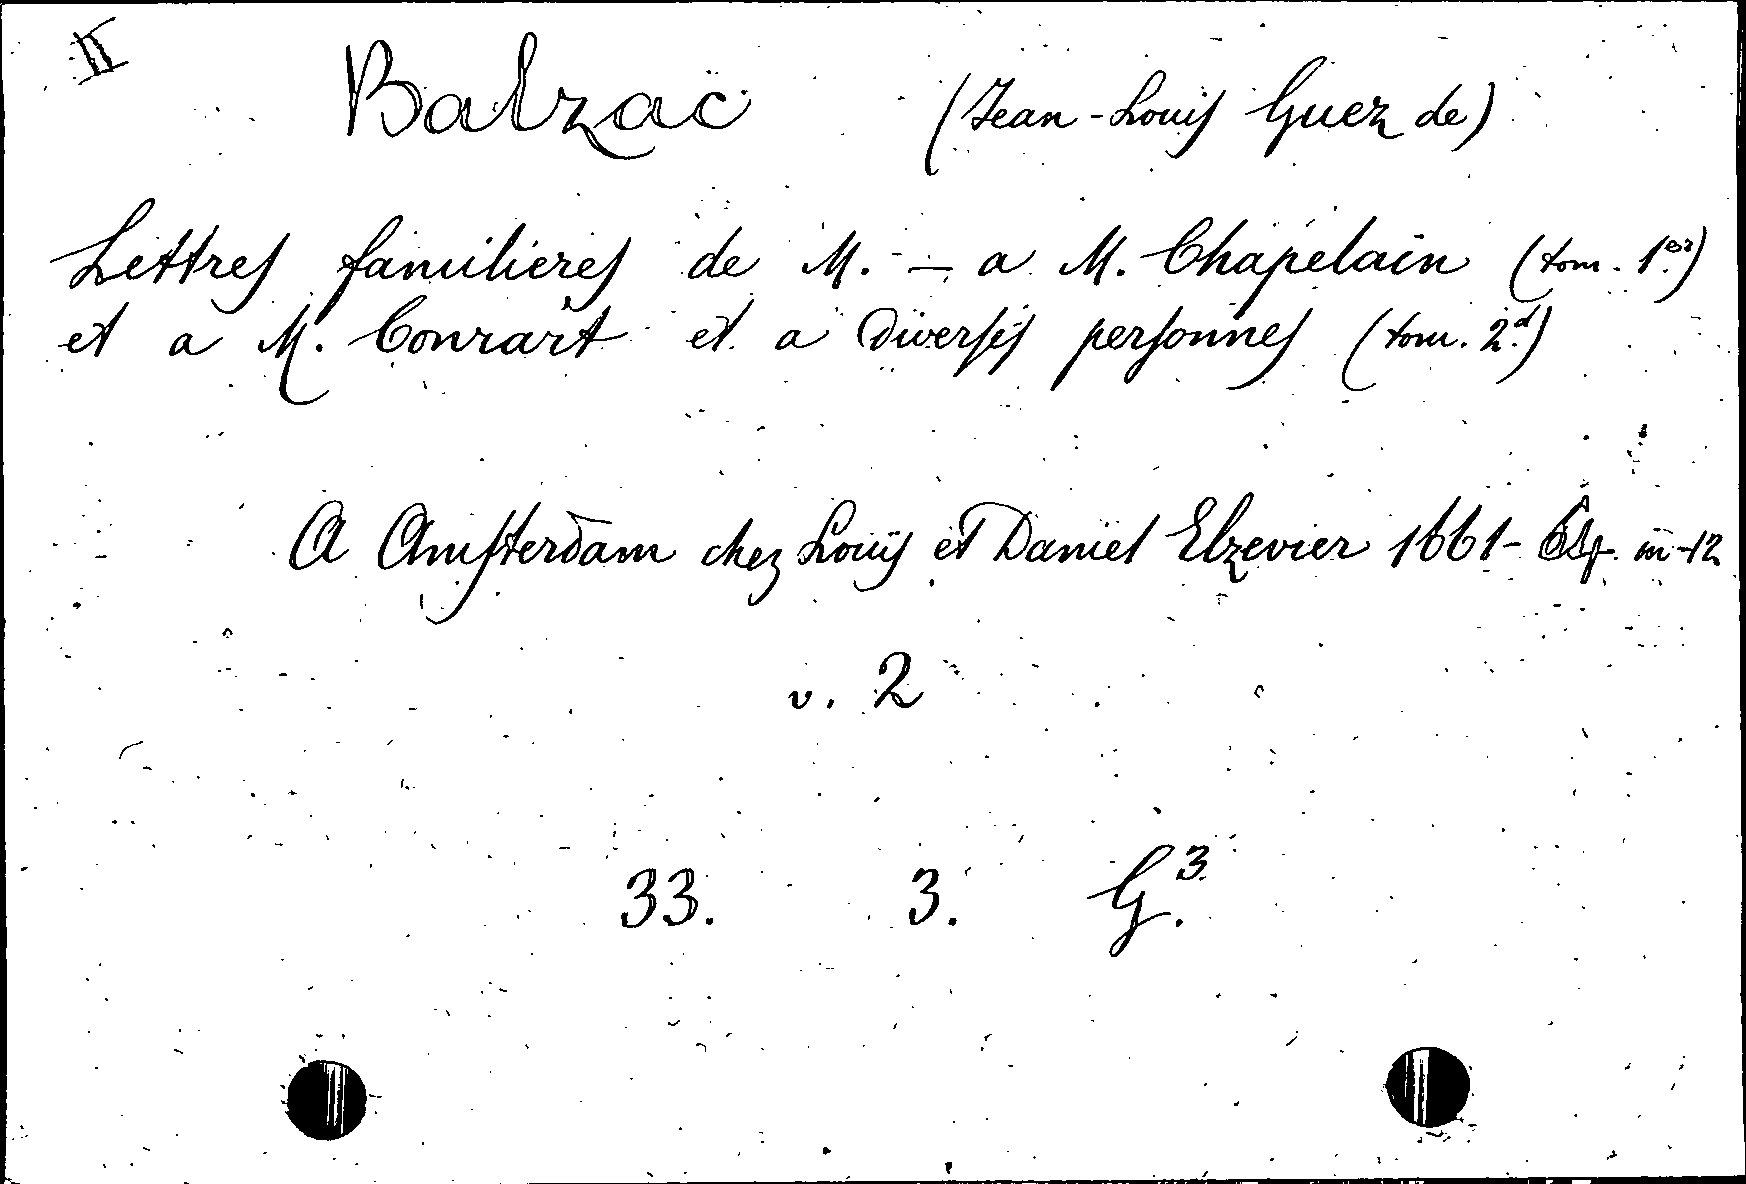 II
Balzac (Jean-Louis Guez de)
Lettres familieres de M. — a M. Chapelain (tom. 1.er)
et a M. Conrart et a diverses personnes (tom. 2.d)
A Amsterdam chez Louis et Daniel Elzevier 1661- in-12
v. 2
33. 3. G.3